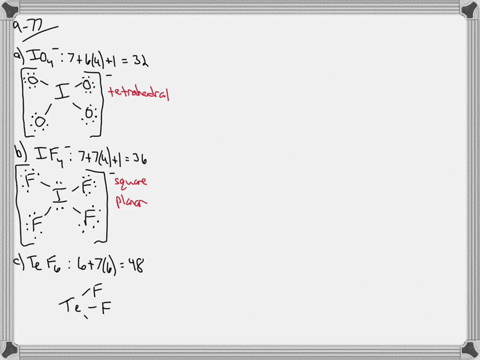 9-77
a) IO₄⁻ : 7+6(4)+1 = 32
O O
I
O O
tetrahedral
b) IF₄⁻ : 7+7(4)+1 = 36
F F
I
F F
square
planar
c) TeF₆ : 6+7(6) = 48
F
Te F